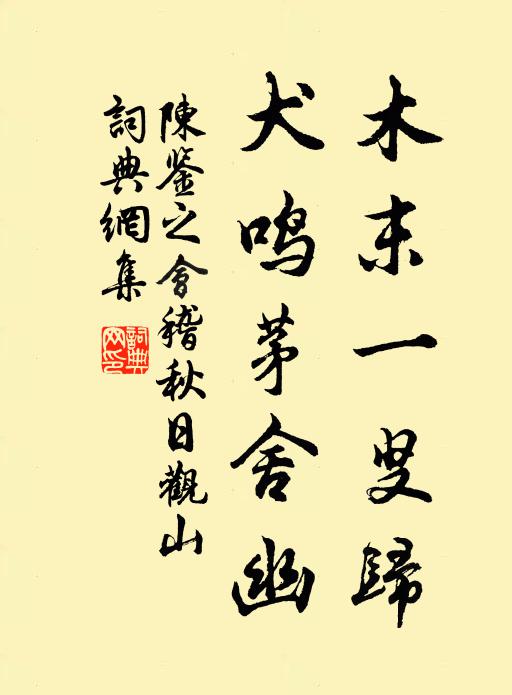 木末一叟歸
犬鳴茅舍幽
陳鉴之會稽秋日觀山
詞典網集
詞典
网印